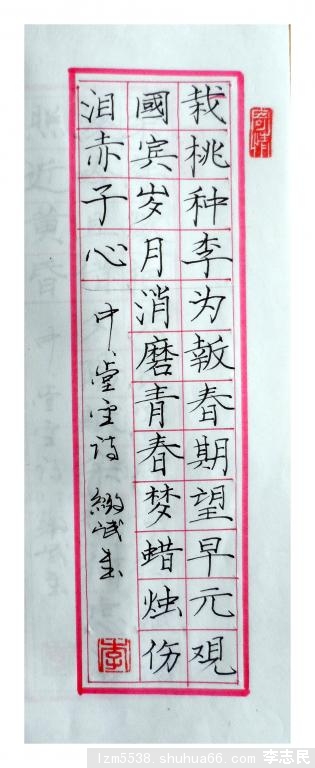 寄情
栽桃种李为報春期望早元覌
國宾岁月消磨青春梦蜡烛伤
泪赤子心
中堂诗 书
李
lzm5538.shuhua66.com 李志民